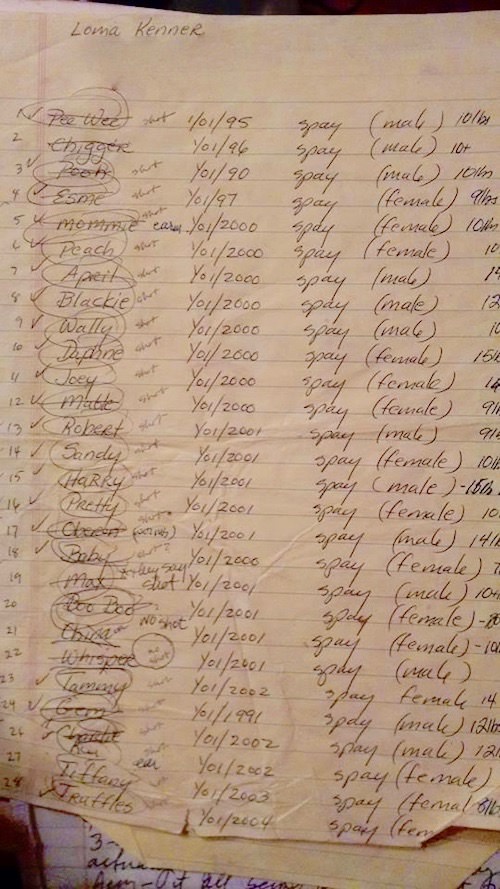 Loma Kenner
1 ✓ Pee Wee shot 1/01/95 spay (male) 10lbs
2 Chigger Y01/96 spay (male) 10+
3 ✓ Pooh shot Y01/90 spay (male) 10lbs
4 ✓ Esme shot Y01/97 spay (female) 9lbs
5 ✓ mommie shot Y01/2000 spay (female) 10lbs
6 ✓ Peach shot Y01/2000 spay (female) 10
7 ✓ April shot Y01/2000 spay (male)
8 ✓ Blackie shot Y01/2000 spay (male) 12
9 ✓ Wally shot Y01/2000 spay (male) 10
10 ✓ Daphne shot Y01/2000 spay (female) 15lb
11 ✓ Joey shot Y01/2000 spay (female)
12 ✓ shot Y01/2000 spay (female) 9l
13 ✓ Robert shot Y01/2001 spay (male) 9l
14 ✓ Sandy shot Y01/2001 spay (female) 10lb
15 ✓ HaRRy shot Y01/2001 spay (male) -15lb
16 ✓ Pretty shot Y01/2001 spay (female) 10
17 ✓ Oberon shot? Y01/2001 spay (male) 14lb
18 ✓ Baby shot? Y01/2000 spay (female)
19 Max they say shot Y01/2001 spay (male) 10+
20 Boo Boo ? Y01/2001 spay (female) -8
21 China NO shot Y01/2001 spay (female) -10
22 Whisper no shot Y01/2001 spay (male)
23 ✓ Tammy shot Y01/2002 spay female 14
24 ✓ Gem shot Y01/1991 spay (male) 12lbs
26 ✓ Charlie shot Y01/2002 spay (male) 12
27 Tiffany ear Y01/2002 spay (female)
28 ✓ Truffles shot Y01/2003 spay (femal 8lb
Y01/2004 spay (fem
3-
actua